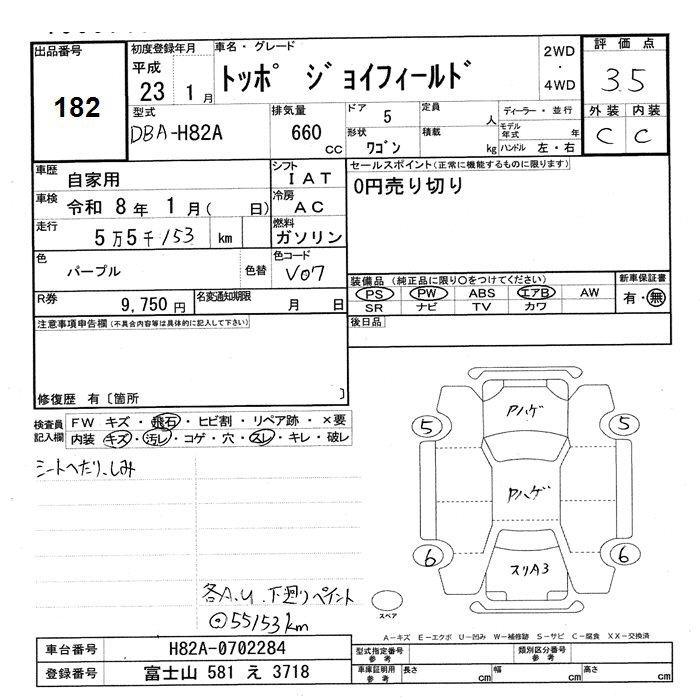 出品番号
182
初度登録年月
平成
23 1月
車名・グレード
トッポ ジョイフィールド
2WD
・
4WD
評価点
3.5
型式
DBA-H82A
排気量
660
CC
ドア 5
定員 人
形状 ワゴン
積載 kg
ディーラー・並行
モデル年式 年
ハンドル 左・右
外装 内装
C C
車歴 自家用
シフト IAT
車検 令和8年1月( 日)
冷房 AC
走行 5万5千153 km
燃料 ガソリン
色 パープル
色替
色コード V07
R券 9,750円
名変通知期限 月 日
セールスポイント(正常に機能するものに限ります)
0円売り切り
装備品(純正品に限り○をつけてください)
PS PW ABS エアB AW
SR ナビ TV カワ
新車保証書
有・無
後日品
注意事項申告欄(不具合内容等は具体的に記入して下さい)
修復歴 有〔箇所 〕
検査員記入欄
FW キズ・飛石・ヒビ割・リペア跡・×要
内装 キズ・汚レ・コゲ・穴・スレ・キレ・破レ
シートへたり、しみ
各A.U.下廻りペイント
◎55153km
Aハゲ
5 5
Aハゲ
6 6
スリA3
スペア
A-キズ E-エクボ U-凹み W-補修跡 S-サビ C-腐食 XX-交換済
車台番号 H82A-0702284
登録番号 富士山 581 え 3718
型式指定番号 参考
類別区分番号 参考
車庫証明用 参考
長さ cm
幅 cm
高さ cm